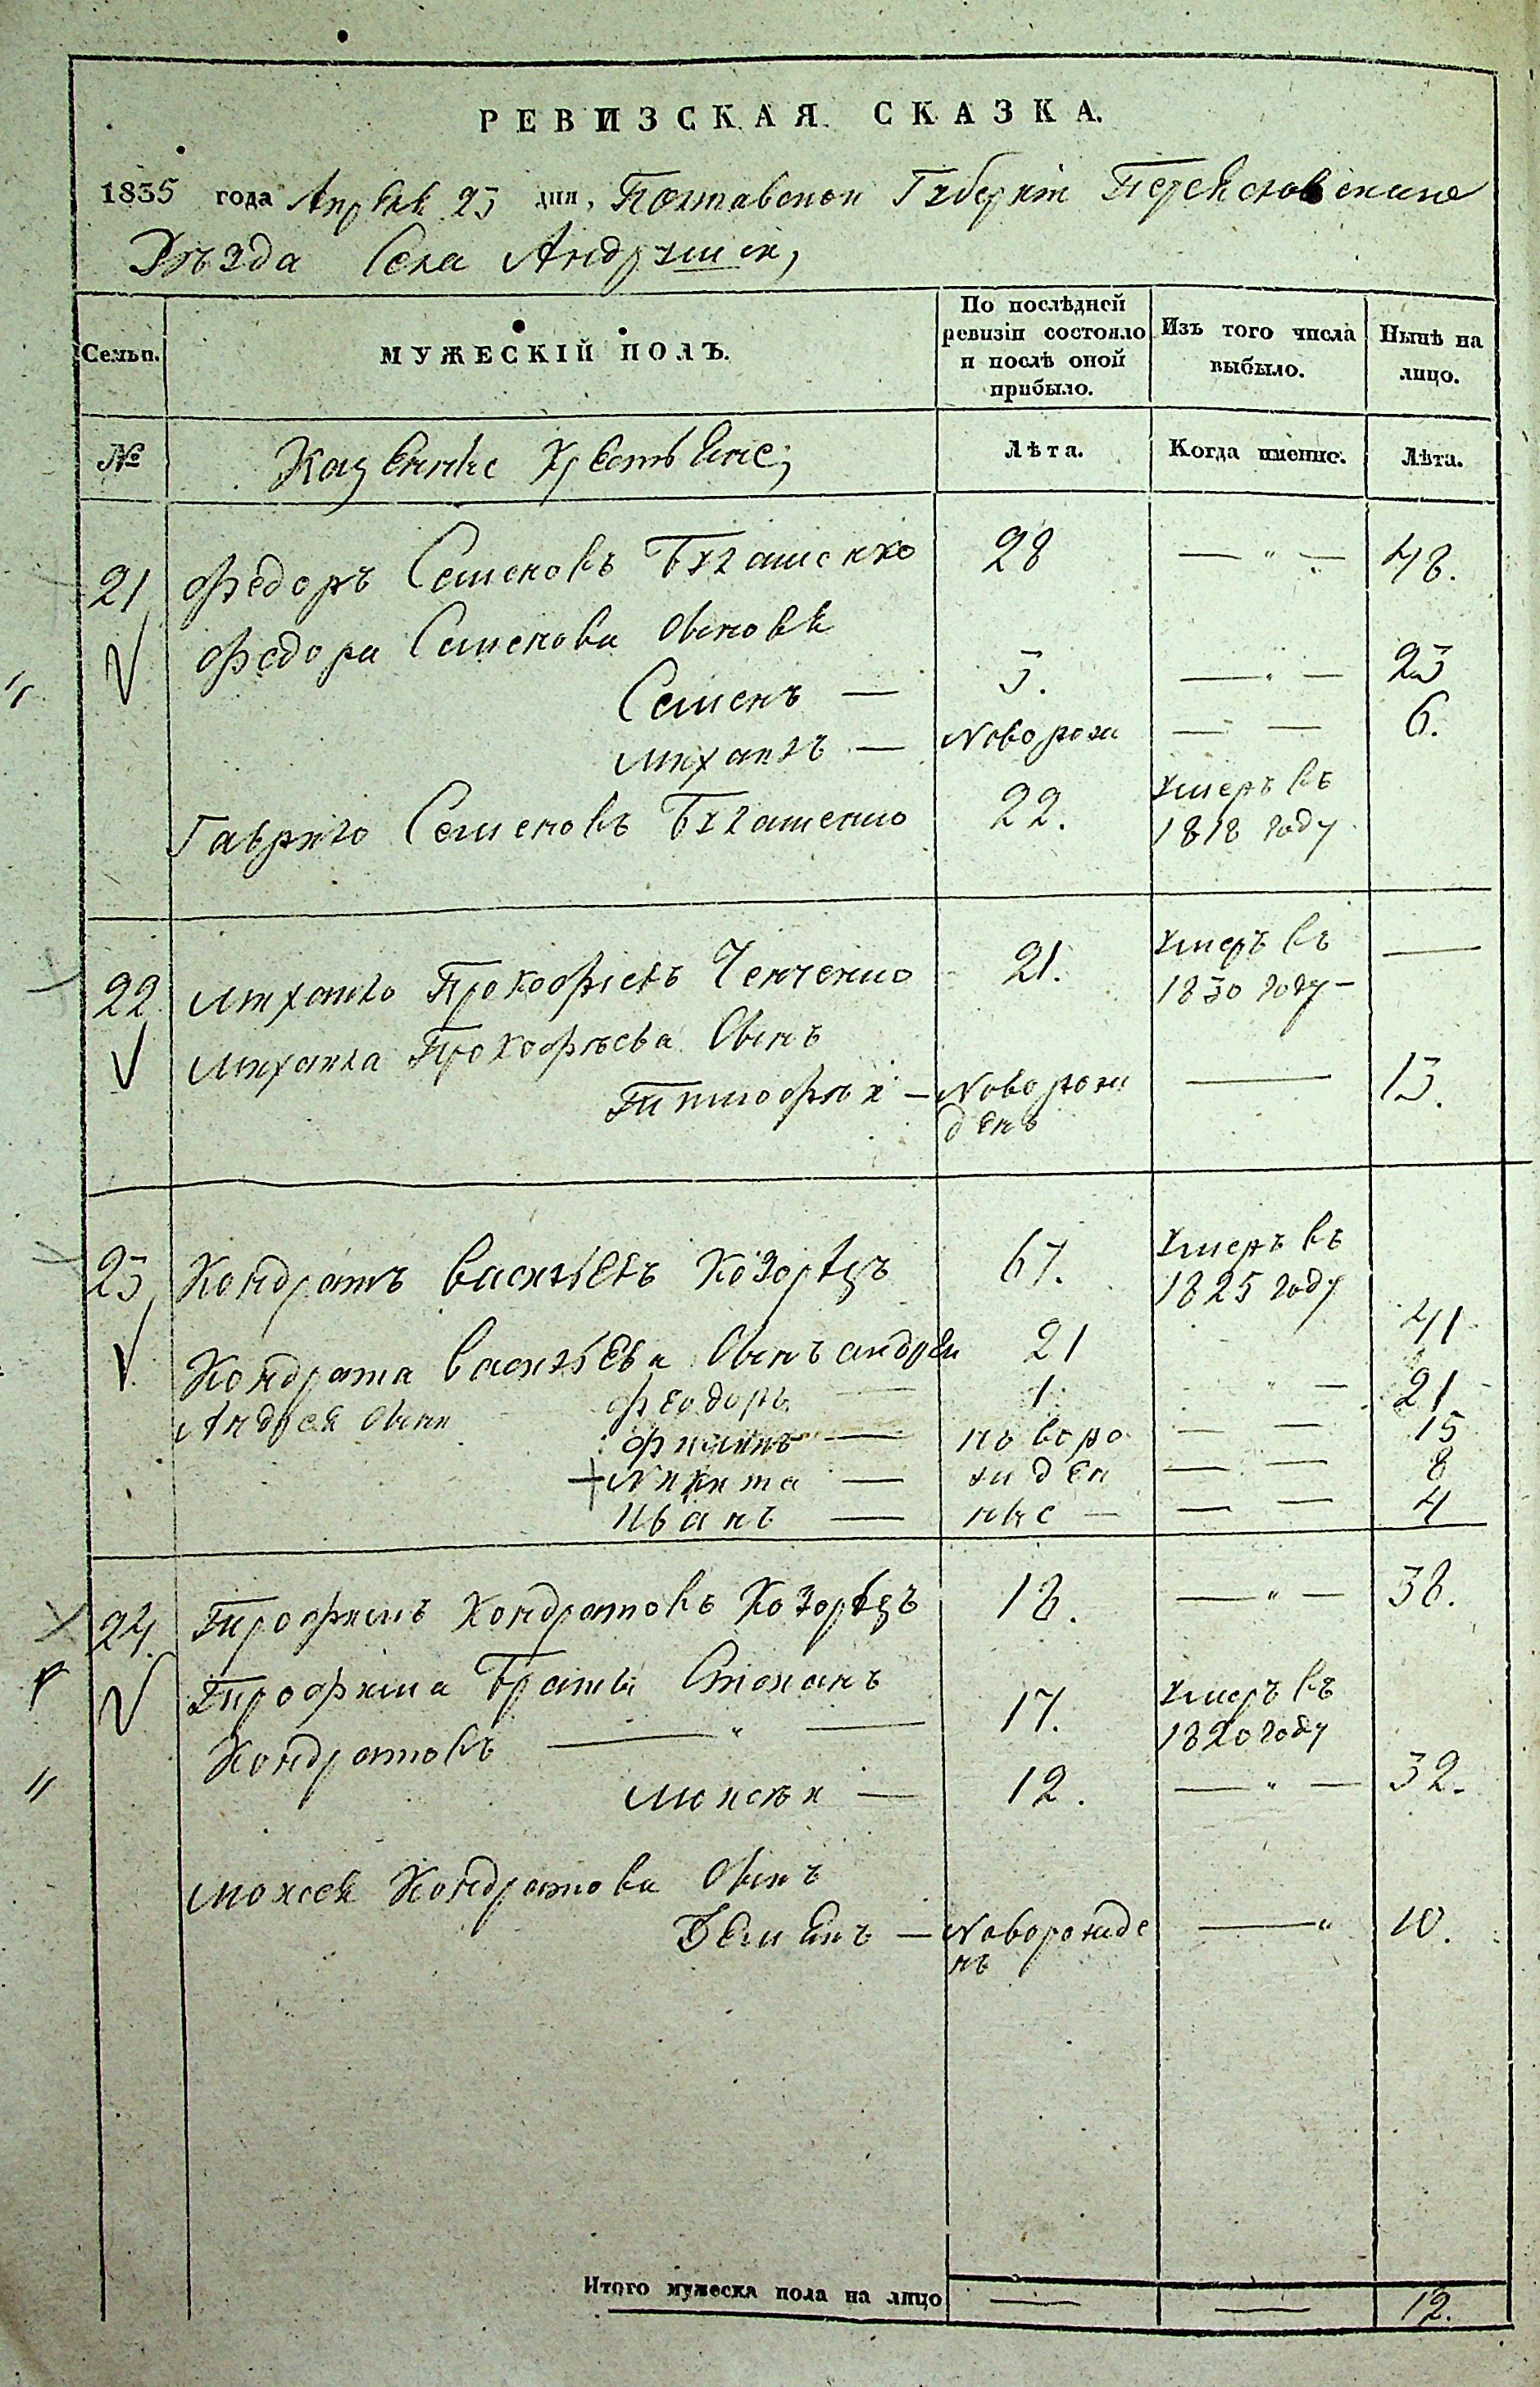 РЕВИЗСКАЯ СКАЗКА.
1835 года Апреля 23 дня, Полтавской Губернiи Переясловскаго
Уѣзда Села Андрушы,
Семьи. МУЖЕСКІЙ ПОЛЪ. По послѣдней ревизіи состояло и послѣ оной прибыло. Изъ того числа выбыло. Нынѣ на лицо.
№ Казенные Крестьяне; Лѣта. Когда именно. Лѣта.
21 Федоръ Семеновъ 28 — " — 48.
Федора Семенова сыновья
Семенъ — 3. — " — 23
Михаилъ — Наворож — — 6.
Гаврило Семеновъ 22. Умеръ въ
1818 году
22 Михайло Прокофьевъ Ченченко 21. Умеръ въ —
1830 году —
Михаила Прокофьева сынъ
Тимофѣй — Наворож — 13.
денъ
23 Кондратъ Васильевъ Козорѣзъ 67. Умеръ въ
1825 году
Кондрата Васильева сынъ андрей 21 41
Андрея сыны Феодоръ — 1 " — 21
Филипъ — новоро — — 15
Никита — жден — — 8
Иванъ — ные — — — 4
24 Трофимъ Кондратовъ Козорѣзъ 18. — " — 38.
Трофима Братья Степанъ 17. Умеръ въ
Кондратовы — " — 1820 году
Мойсѣй — 12. — " — 32.
Мойсея Кондратова сынъ
Демьянъ — Наворожде — " 10.
нъ
Итого мужеска пола на лицо — — 12.